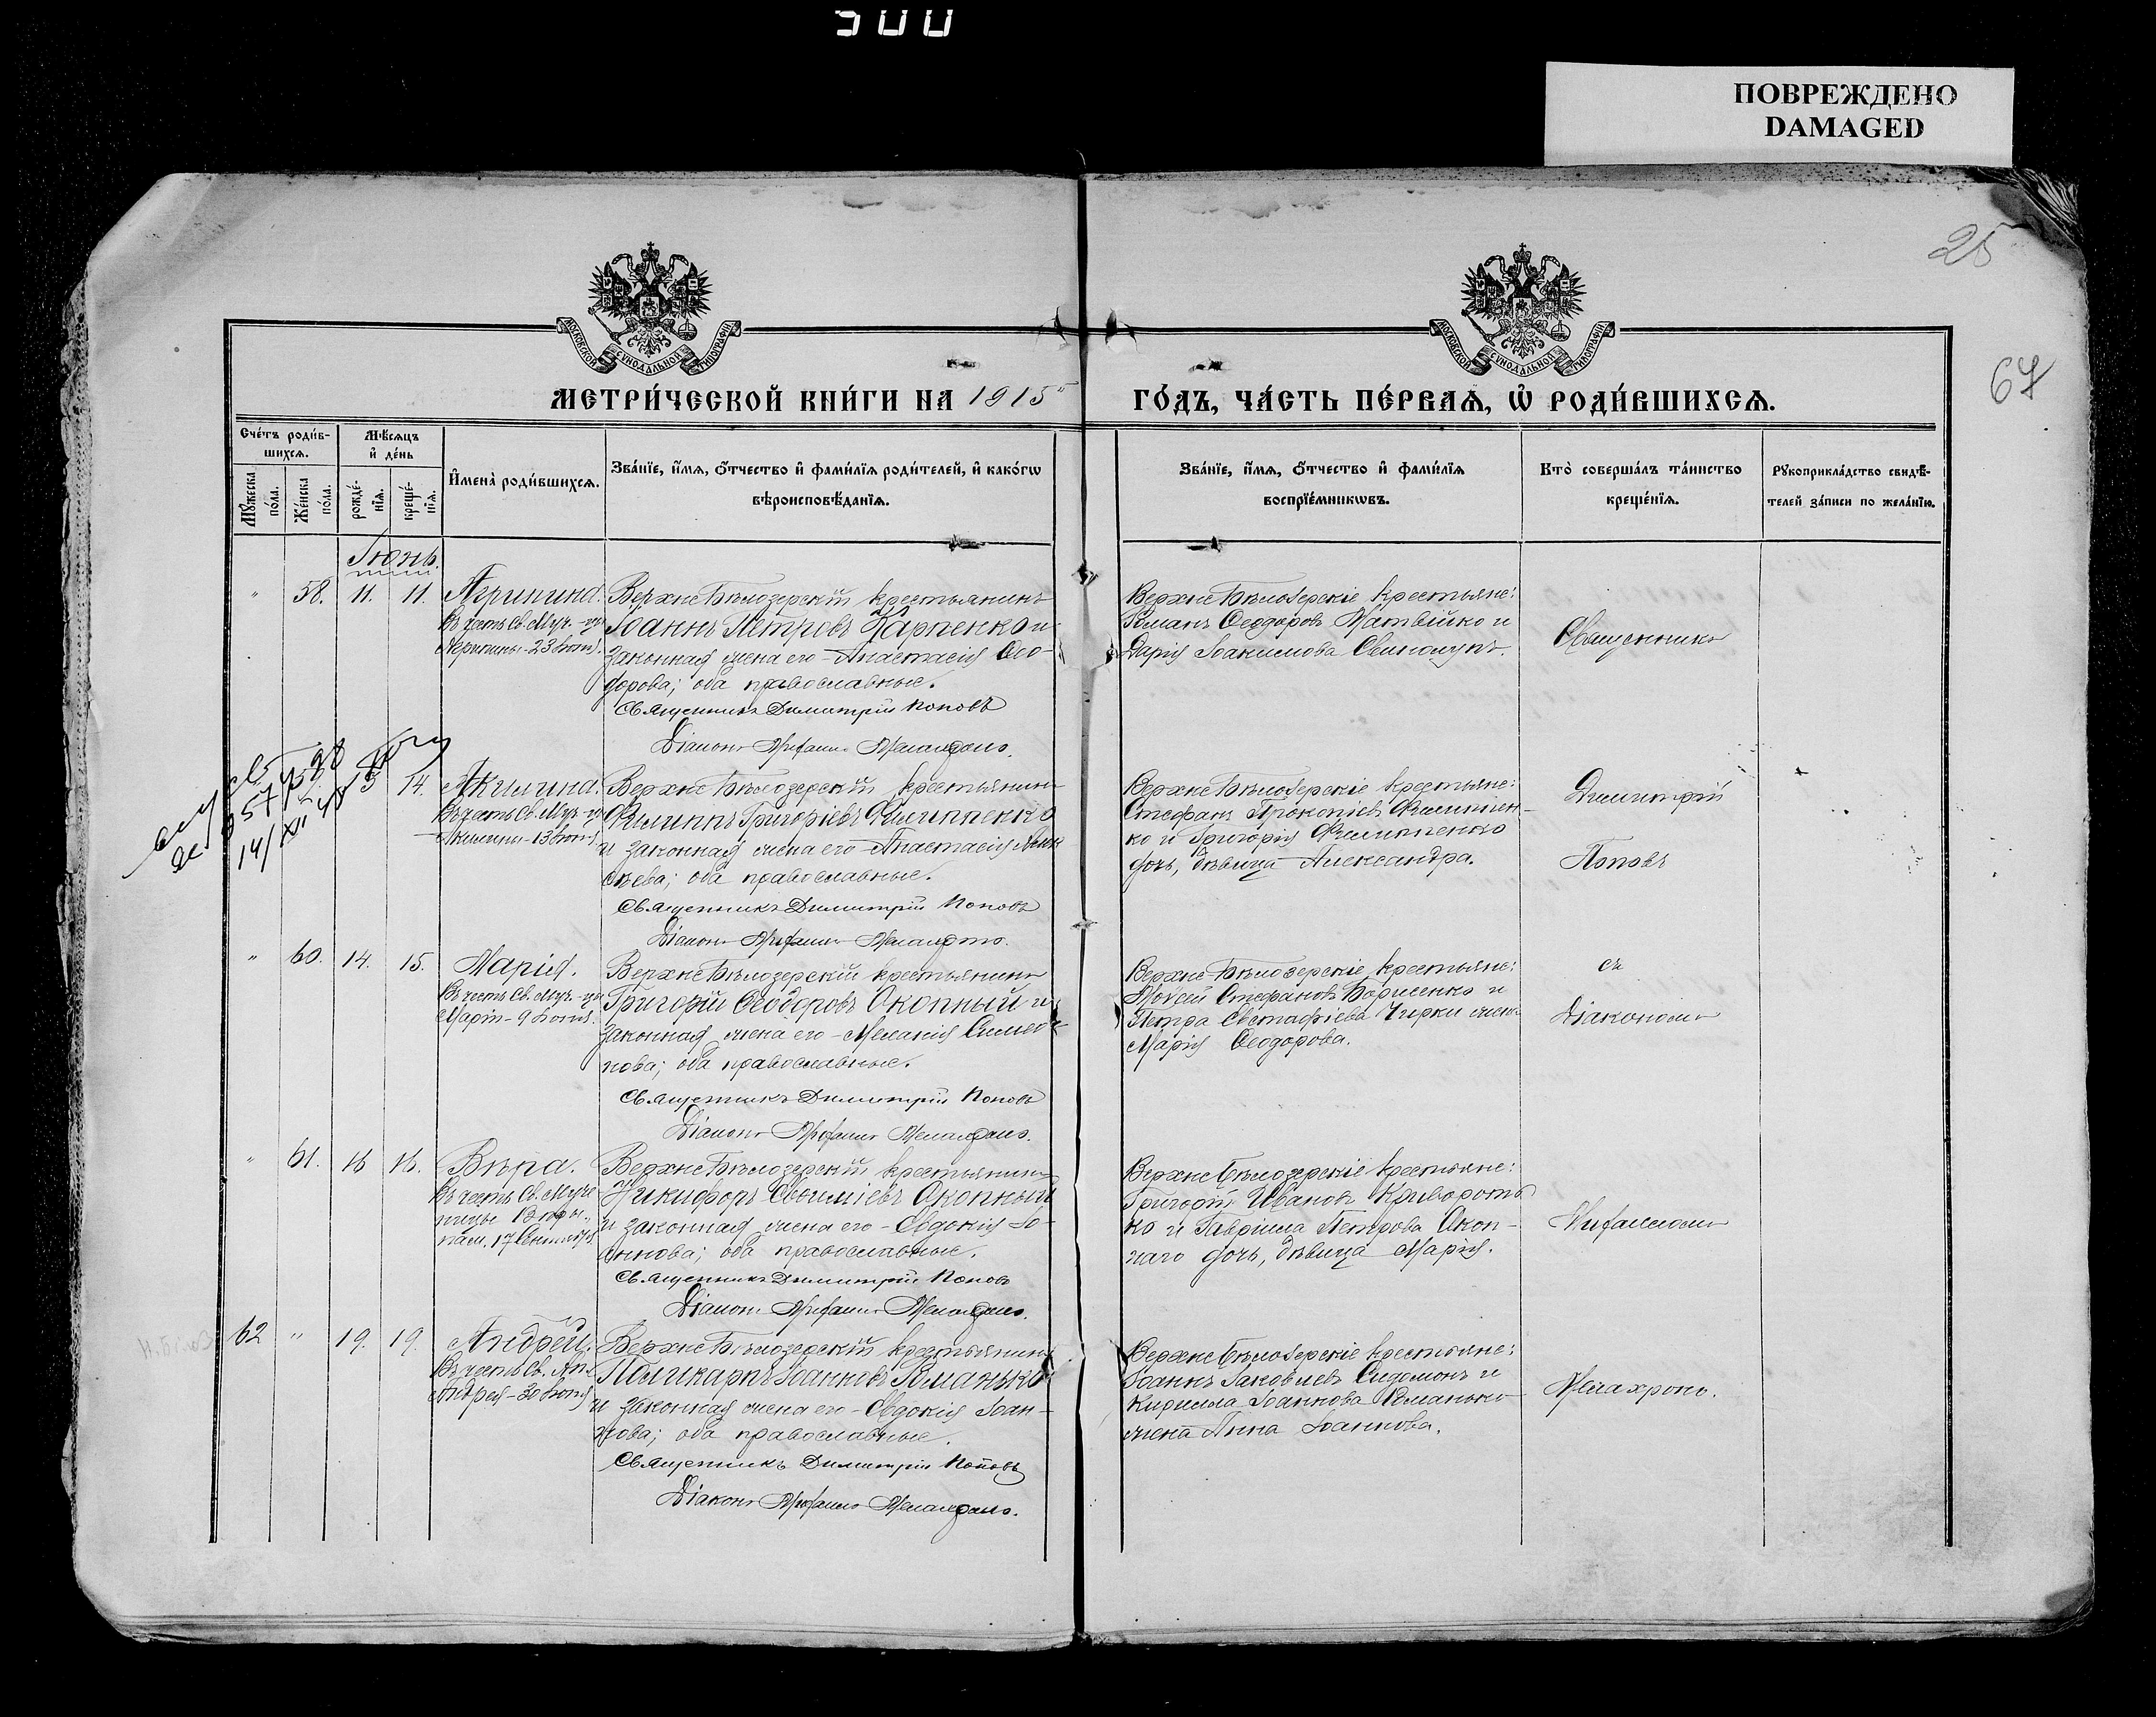 500
ПОВРЕЖДЕНО
DAMAGED
25
67
МОСКОВСКОЙ СѴНОДАЛЬНОЙ ТИПОГРАФІИ
МОСКОВСКОЙ СѴНОДАЛЬНОЙ ТИПОГРАФІИ
МЕТРИ́ЧЕСКОЙ КНИ́ГИ НА 1915
ГО́ДЪ, ЧА́СТЬ ПЕ́РВАѦ, Ѡ҆ РОДИ́ВШИХСѦ.
Сче́тъ роди́в-
шихсѧ.
Мꙋ́жеска
по́ла.
Же́нска
по́ла.
Мѣ́сѧцъ
и҆ де́нь
рожде́-
нїѧ.
креще́-
нїѧ.
И҆мена̀ роди́вшихсѧ.
Зва́нїе, и҆́мѧ, ѻ҆́тчество и҆ фами́лїѧ роди́телей, и҆ како́гѡ
вѣроисповѣ́данїѧ.
Зва́нїе, и҆́мѧ, ѻ҆́тчество и҆ фами́лїѧ
воспрїе́мникѡвъ.
Кто̀ соверша́лъ та́инство
креще́нїѧ.
Рꙋкоприкла́дство свидѣ́-
телей за́писи по жела́нїю.
Іюнь.
" 58. 11. 11. Агрипина.
Въ честь Св. Муч-цы
Агрипины - 23 Іюня.
Верхне Бѣлозерскій крестьянинъ
Іоаннъ Петровъ Карпенко и
законная жена его - Анастасія Ѳео-
дорова; оба православные.
Священникъ Димитрій Поповъ
Діаконъ
Верхне Бѣлозерскіе крестьяне:
Романъ Ѳеодоровъ Матвійко и
Дарія Іоакимова
Священникъ
14/XII
14. Акилина.
Въ честь Св. Муч-цы
Акилины - 13 Іюня
Верхне Бѣлозерскій крестьянинъ
Филиппъ Григоріевъ Филиппенко
и законная жена его - Анастасія Алек
сѣева; оба православные.
Священникъ Димитрій Поповъ
Діаконъ
Верхне Бѣлозерскіе крестьяне:
Стефанъ Прокопіевъ Филиппен-
ко и Григорія Филиппенко
дочь, дѣвица Александра.
Димитрій
Поповъ
" 60. 14. 15. Марія.
Въ честь Св. Муч-цы
Маріи - 9 Іюня.
Верхне Бѣлозерскій крестьянинъ
Григорій Ѳеодоровъ Окопный и
законная жена его - Меланія Симео-
нова; оба православные.
Священникъ Димитрій Поповъ
Діаконъ
Верхне-Бѣлозерскіе крестьяне:
Моѵсей Стефановъ Борисенко и
Петра Евстафіева Чирки жена
Марія Ѳеодорова.
съ
Діакономъ
" 61. 16 16. Вѣра.
Въ честь Св. Муче
ницы Вѣры..
пам. 17 Сентября
Верхне Бѣлозерскій крестьянинъ
Никифоръ Евѳиміевъ Окопный
и законная жена его - Евдокія Іо-
аннова; оба православные.
Священникъ Димитрій Поповъ
Діаконъ
Верхне Бѣлозерскіе крестьяне:
Григорій Ивановъ Кривороть
ко и Гавріила Петрова Окоп-
наго дочь, дѣвица Марія.
62 " 19. 19. Андрей.
Въ честь Св. Ап.
Андрея - 30 Іюня
Верхне Бѣлозерскій крестьянинъ
Поликарпъ Іоанновъ Романько
и законная жена его - Евдокія Іоан-
нова; оба православные.
Священникъ Димитрій Поповъ
Діаконъ
Верхне Бѣлозерскіе крестьяне:
Іоаннъ Іаковлевъ Сидомонъ и
Кирилла Іоаннова Романько
жена Анна Іоаннова.